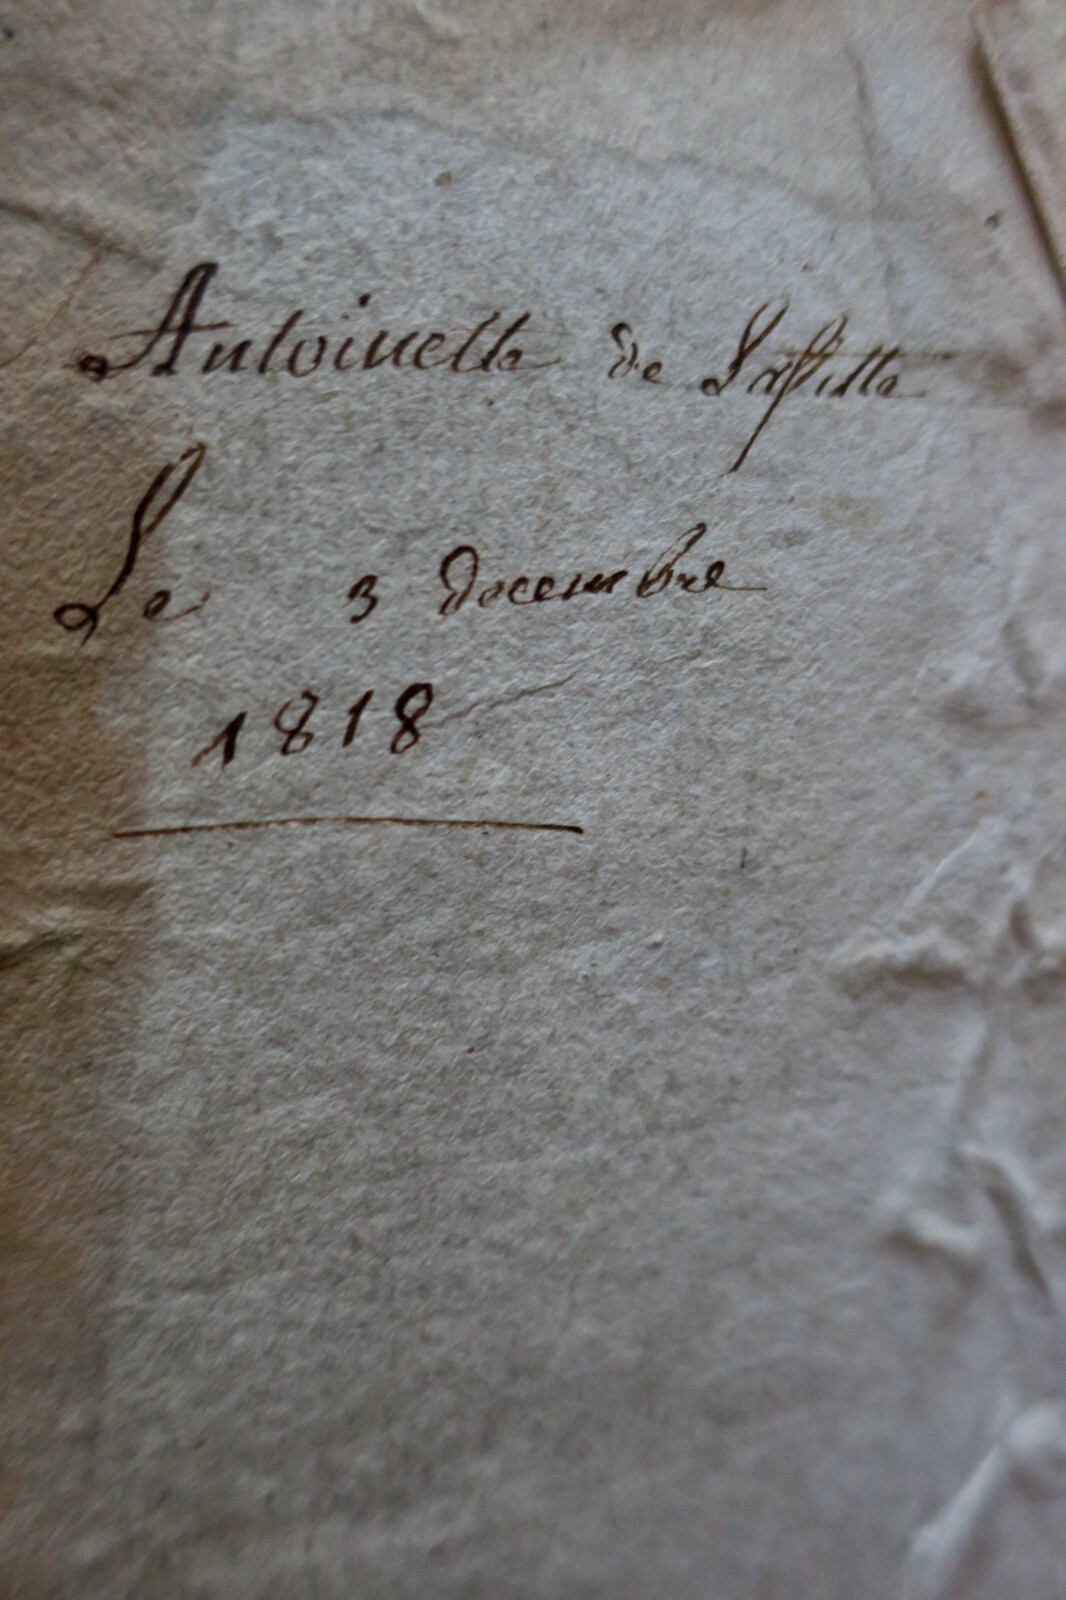 Antoinette de Laffitte
Le 3 decembre
1818